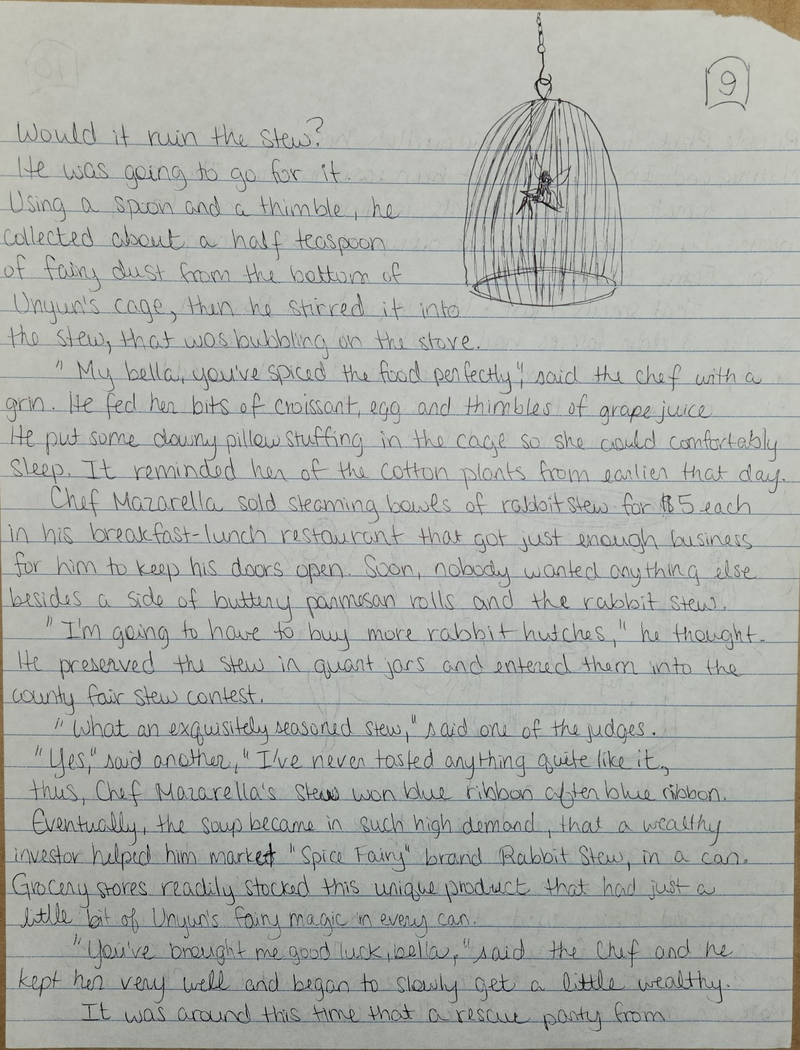 9
Would it ruin the stew?
He was going to go for it.
Using a spoon and a thimble, he
collected about a half teaspoon
of fairy dust from the bottom of
Unyun's cage, then he stirred it into
the stew, that was bubbling on the stove.
"My bella, you've spiced the food perfectly", said the chef with a
grin. He fed her bits of croissant, egg and thimbles of grape juice
He put some downy pillow stuffing in the cage so she could comfortably
sleep. It reminded her of the cotton plants from earlier that day.
Chef Mazarella sold steaming bowls of rabbit stew for $5 each
in his breakfast-lunch restaurant that got just enough business
for him to keep his doors open. Soon, nobody wanted anything else
besides a side of buttery parmesan rolls and the rabbit stew.
"I'm going to have to buy more rabbit hutches," he thought.
He preserved the stew in quant jars and entered them into the
county fair stew contest.
"What an exquisitely seasoned stew," said one of the judges.
"Yes," said another, "I've never tasted anything quite like it,
thus, Chef Mazarella's stew won blue ribbon after blue ribbon.
Eventually, the soup became in such high demand, that a wealthy
investor helped him market "Spice Fairy" brand Rabbit Stew, in a can.
Grocery stores readily stocked this unique product that had just a
little bit of Unyun's fairy magic in every can.
"You've brought me good luck, bella," said the Chef and he
kept her very well and began to slowly get a little wealthy.
It was around this time that a rescue party from